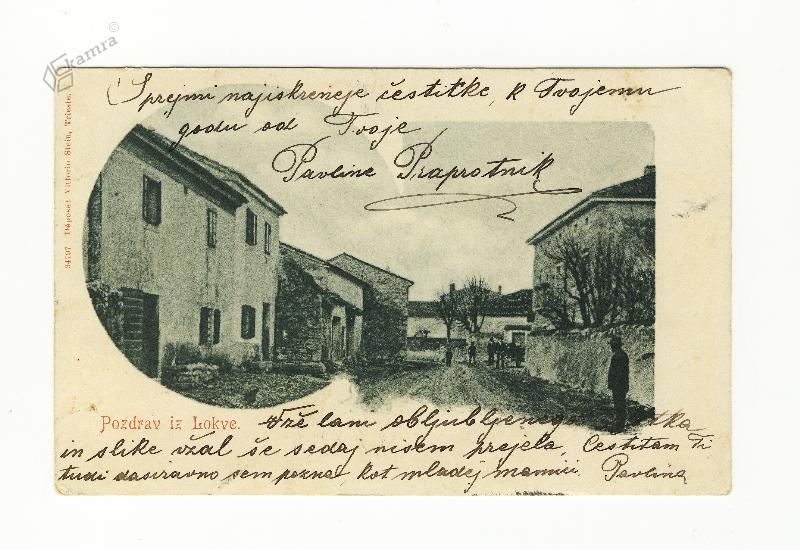 kamra
©
Sprejmi najiskreneje čestitke, k Tvojemu
godu od Tvoje
Pavline Praprotnik
34797 Déposée Vittorio Stein, Trieste.
Pozdrav iz Lokve.
Že lani obljubljenega
in slike užal še sedaj nisem prejela, Čestitam Ti
tudi dasiravno sem pozna, kot mladej mamici. Pavlina